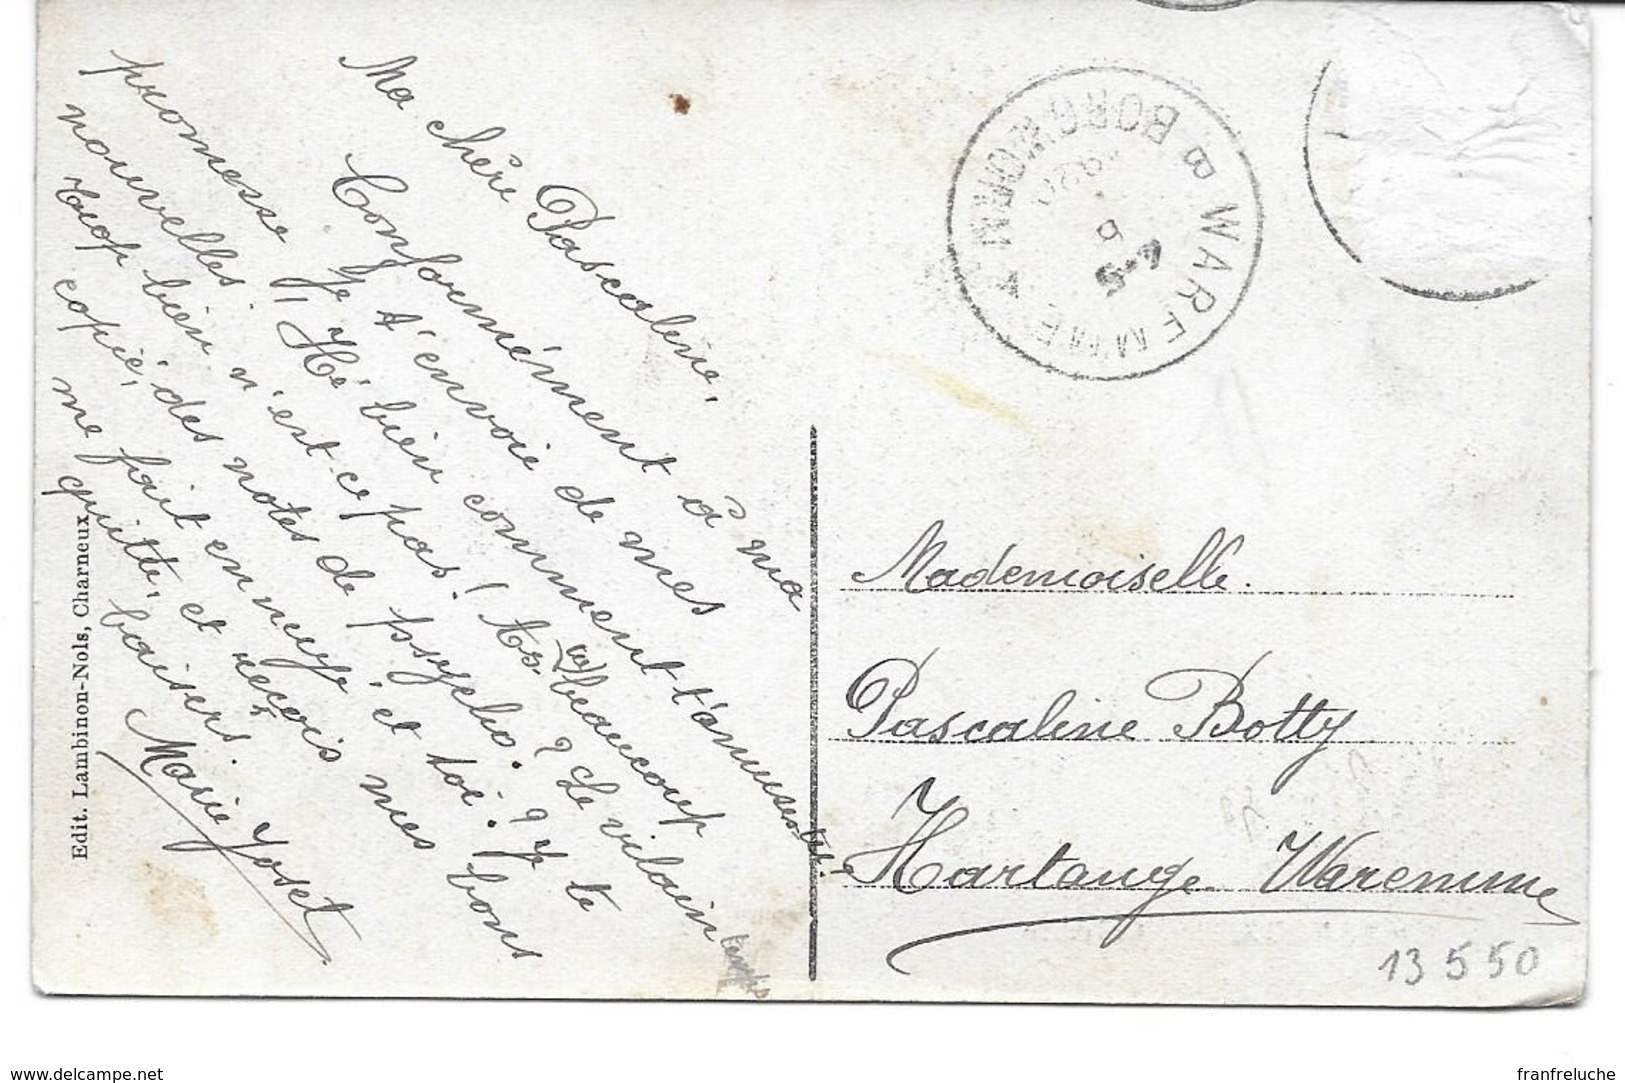 Ma chère Pascaline,
Conformément à ma
promesse, je t'envoie de mes
nouvelles. Hé bien comment t'amuses-tu?
trop bien n'est-ce pas! As-tu beaucoup
copié, des notes de psycho. ? Le vilain temps
me fait ennuyé, et toi. ? Je te
quitte, et reçois mes bons
baisers.
Marie Joset
Edit. Lambinon-Nols, Charneux
B WAREMME
BORGWORM
Mademoiselle.
Pascaline Botty
Hartange Waremme
13550
www.delcampe.net
franfreluche